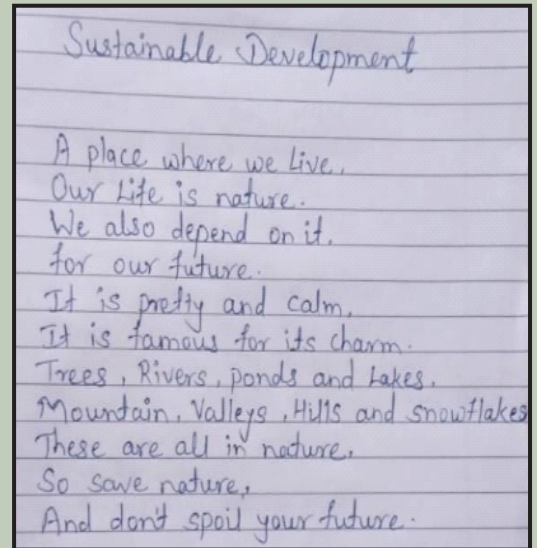 Sustainable Development
A place where we live,
Our Life is nature.
We also depend on it,
for our future.
It is pretty and calm,
It is famous for its charm.
Trees, Rivers, ponds and Lakes,
Mountain, Valleys, Hills and snowflakes
These are all in nature,
So save nature,
And don't spoil your future.